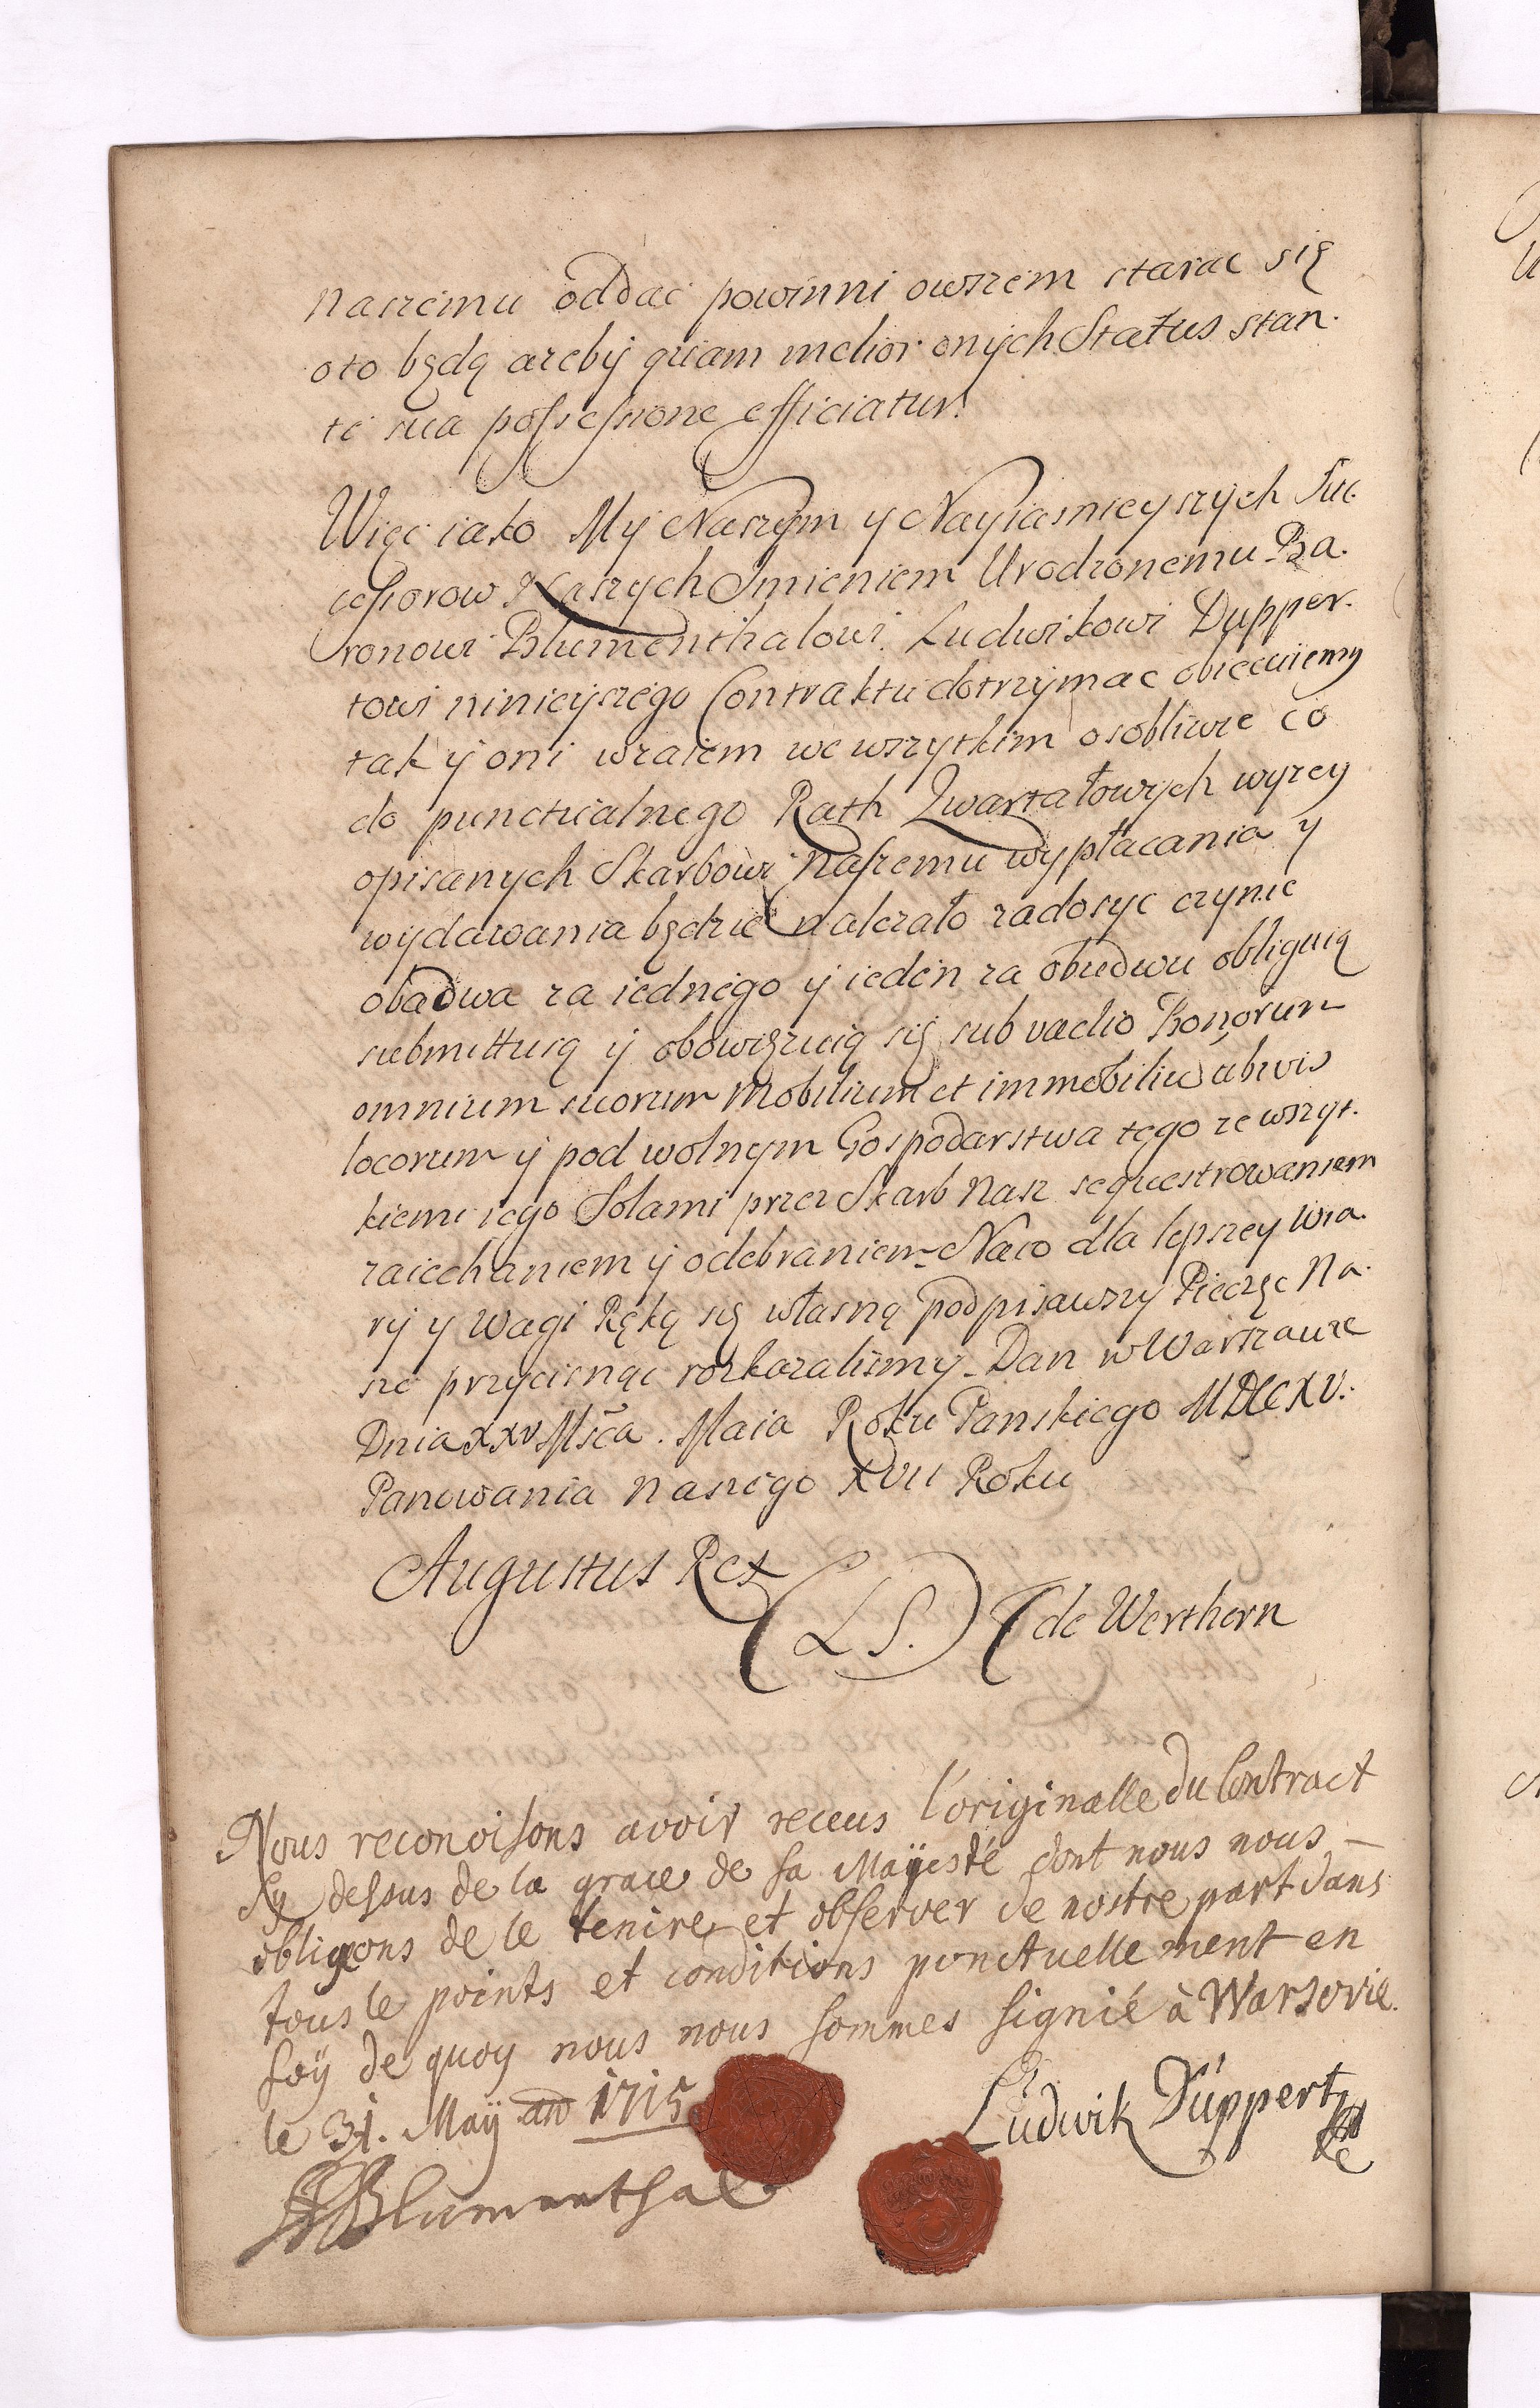 naszemu oddać powinni owszem starac się
oto będą azeby quam melior onych Status stan-
te sua possessione efficiatur.
Więc iako My Naszym y Nayiasnieyszych Suc-
cessorow Naszych Imieniem Urodzonemu Ba-
ronowi Blumenthalowi. Ludwikowi Dupper-
towi ninieyszego Contraktu dotrzymac obiecuiemy
tak y oni wzaiem we wszytkim osobliwie co
do punctualnego Rath Qwartałowych wyzey
opisanych Skarbowi Naszemu wypłacania y
wydawania będzie nalezało zadosyc czynic
obadwa za iednego y ieden za obudwu obliguią
submittuią y obowięzuią się sub vadio Bonorum
omnium suorum Mobilium et immobiliũ ubivis
locorum y pod wolnym Gospodarstwa tego ze wszyt-
kiemi iego Solami przez Skarb Nasz sequestrowaniem
zaiechaniem y odebraniem. Naco dla lepszey Wia-
ry y Wagi Ręką się własną podpisawszy Pieczęc Na-
sze przycisnąc roskazalismy. Dan w Warszawie
Dnia XXV Msca. Maia Roku Panskiego MDCCXV.
Panowania Naszego XVII Roku
Augustus Rex
(L S.) de Werthern
Nous reconoisons avoir receus l'originalle du Contract
Sy dessus de la grace de Sa Mayesté dont nous nous
obligeons de le tenire et observer de nostre part dans
tous le points et conditions ponctuellement en
foÿ de quoy nous nous sommes signié à Warsovie.
le 31. Maÿ ao 1715
Ludwik Düppert
Blumenthal